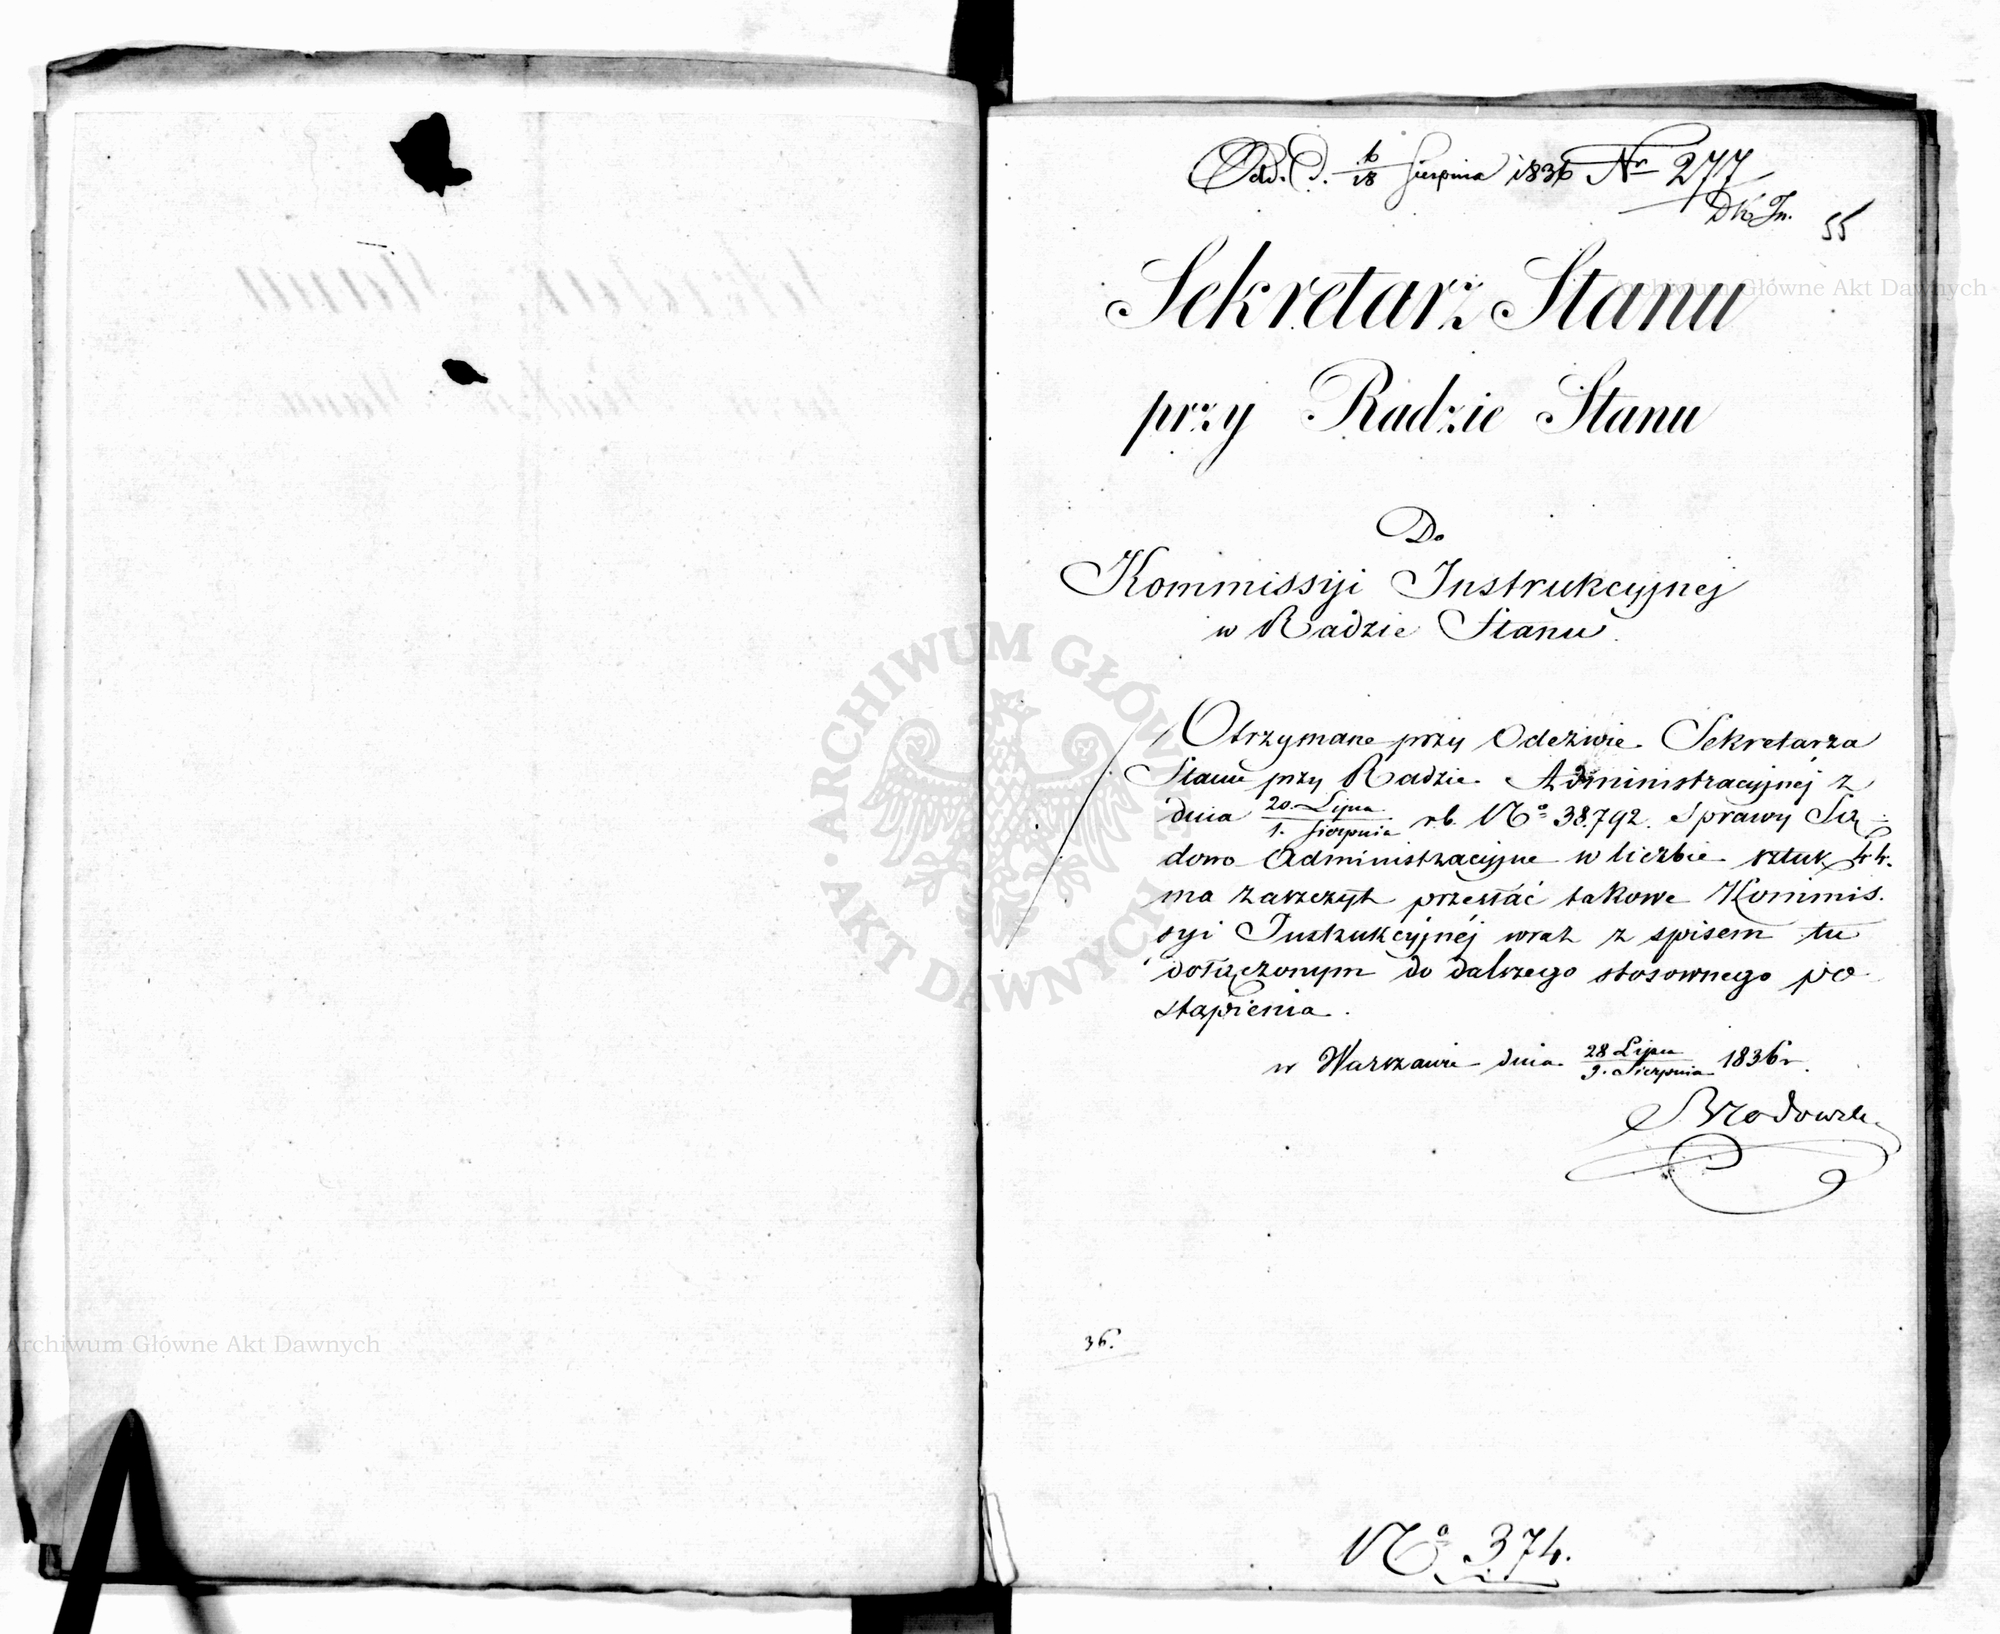 Odd. d. 6/18 Sierpnia 1836 Nr 277
DKIn.
55
Sekretarz Stanu
przy Radzie Stanu
Do
Kommissyi Instrukcyjnej
w Radzie Stanu.
Otrzymane przy Odezwie Sekretarza
Stanu przy Radzie Administracyjnéj z
dnia 20. Lipca / 1. Sierpnia r.b. No 38.792. Sprawy Są-
dowo Administracyjne w liczbie sztuk 44.
ma zaszczyt przesłać takowe Kommis-
syi Instrukcyjnéj wraz z spisem tu
dołączonym do dalszego stosownego po-
stąpienia.
w Warszawie dnia 28 Lipca / 9. Sierpnia 1836 r.
Brodowski
36.
No 374.
Archiwum Główne Akt Dawnych
ARCHIWUM GŁÓWNE AKT DAWNYCH
Archiwum Główne Akt Dawnych